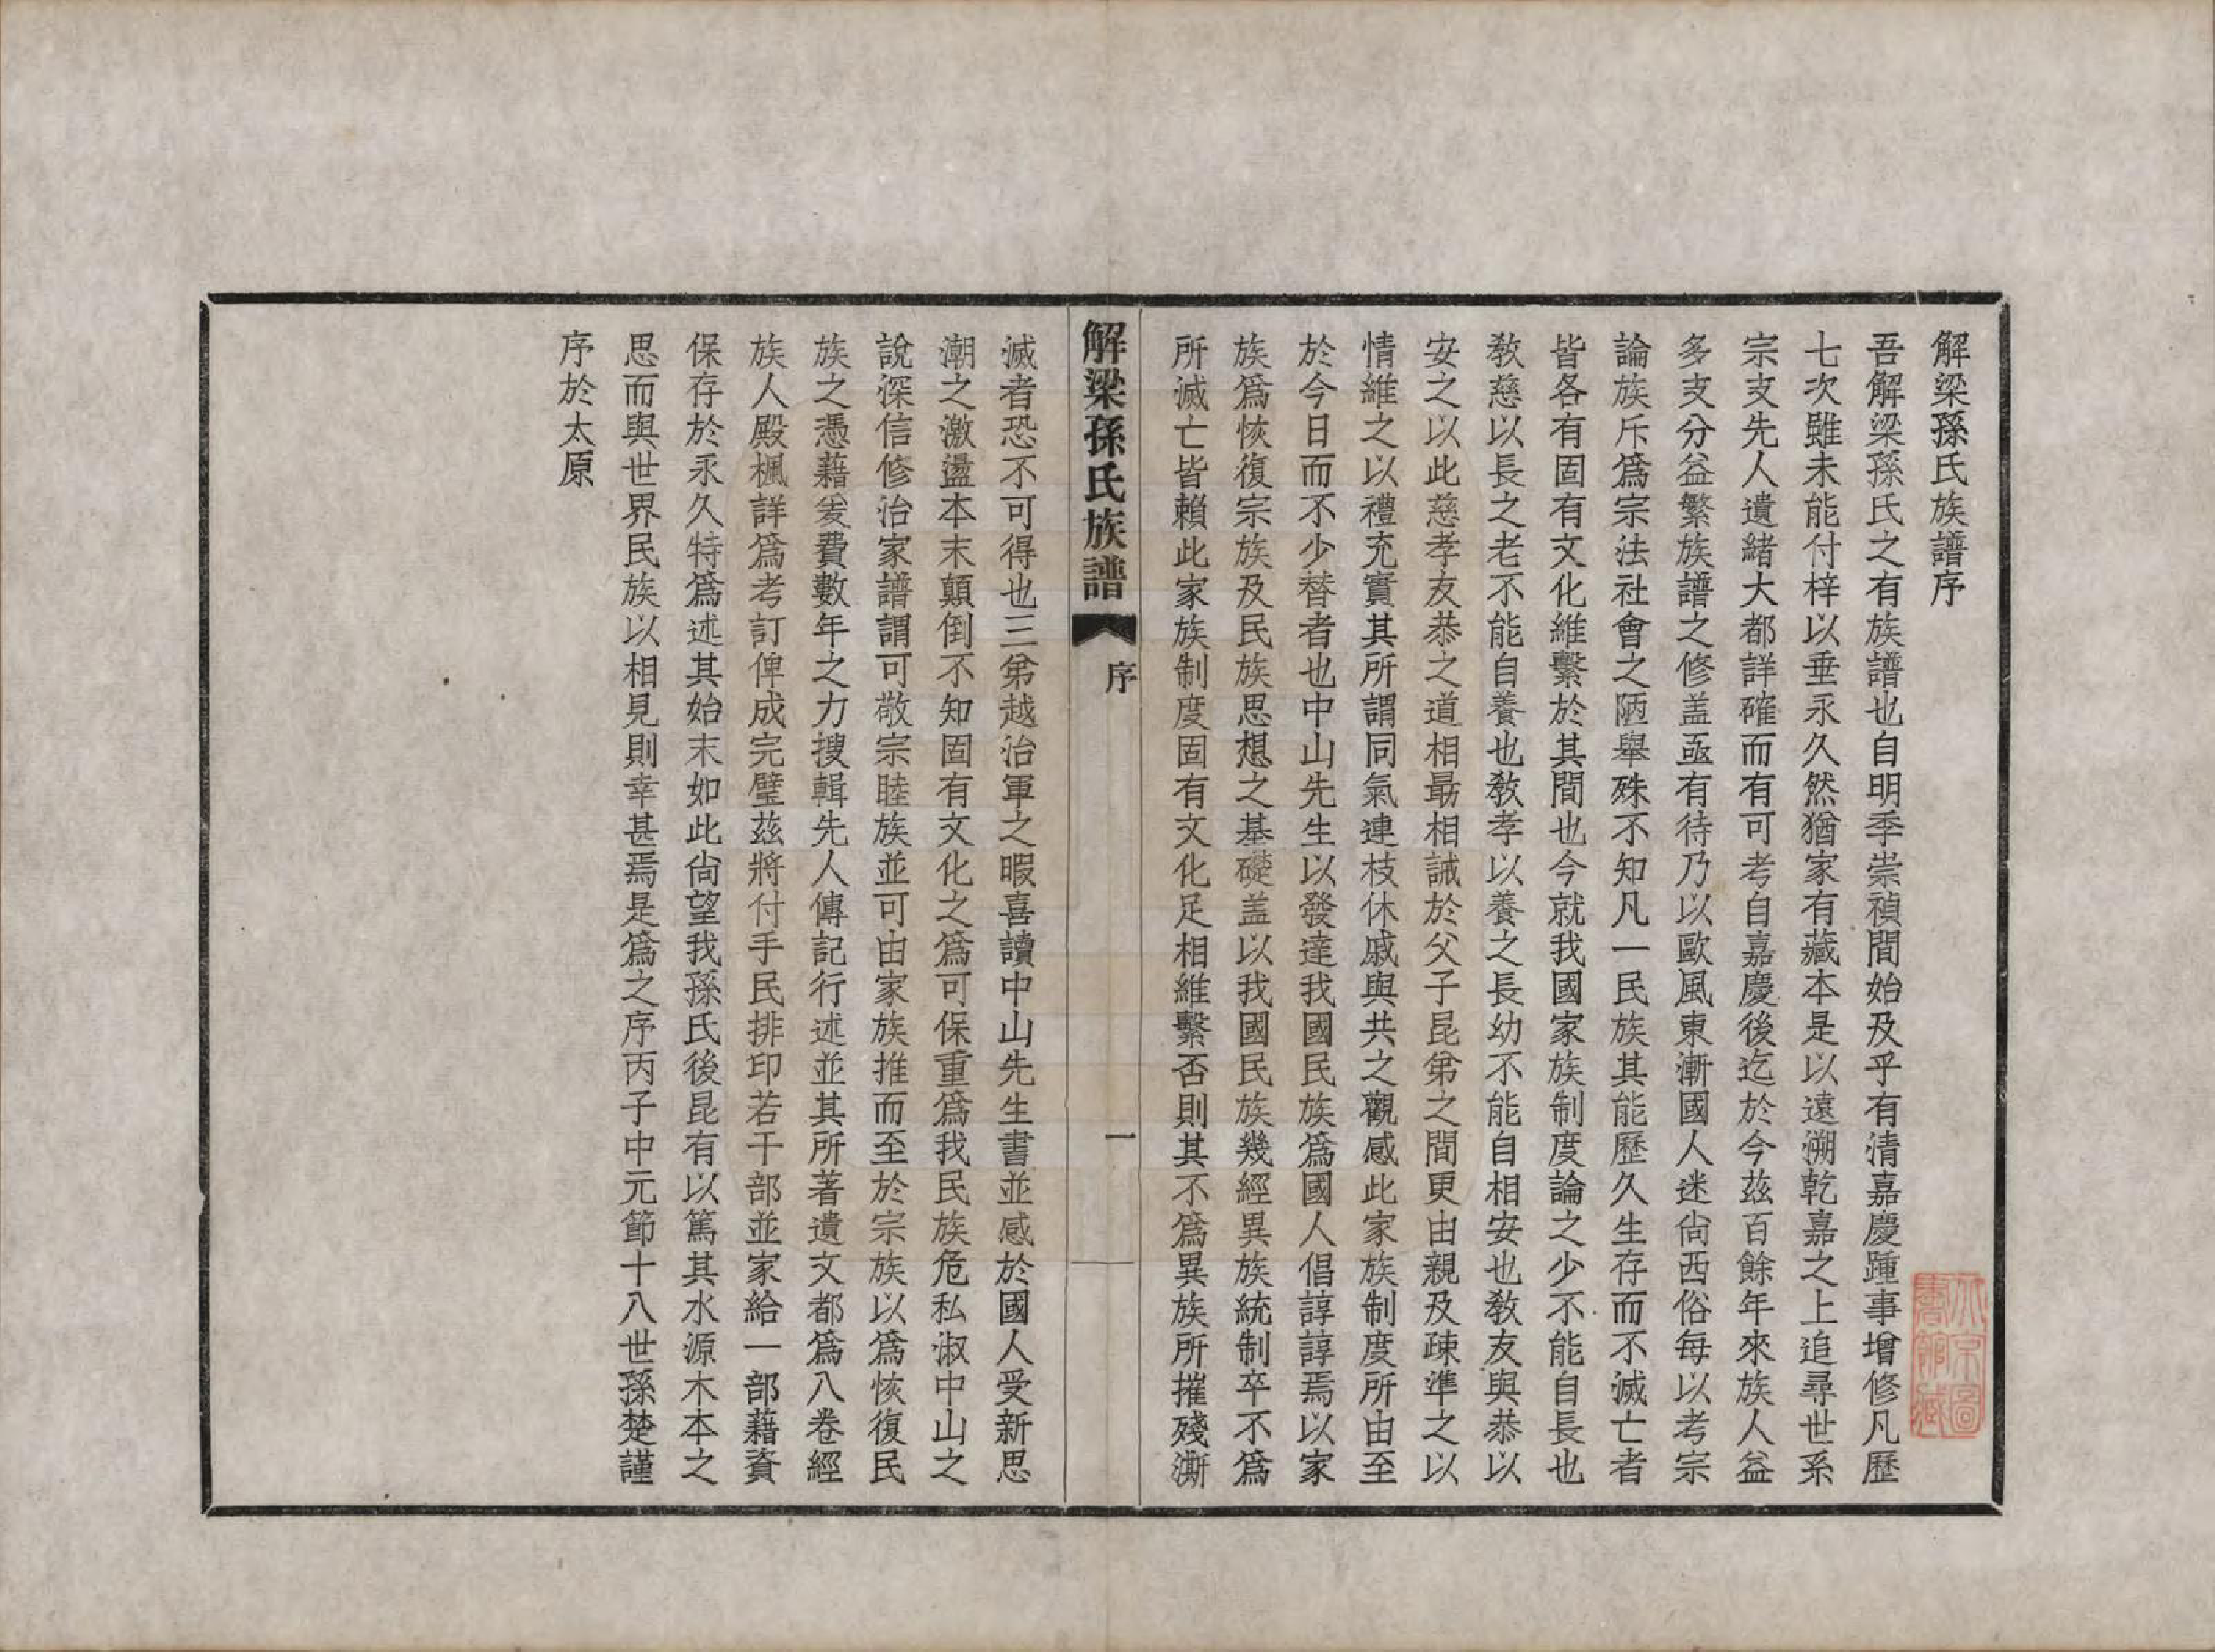 解梁孫氏族譜序
吾解梁孫氏之有族譜也自明季崇禎間始及乎有清嘉慶踵事增修凡歷
七次雖未能付梓以垂永久然猶家有藏本是以遠溯乾嘉之上追尋世系
宗支先人遺緒大都詳確而有可考自嘉慶後迄於今茲百餘年來族人益
多支分益繁族譜之修盖亟有待乃以歐風東漸國人迷尙西俗每以考宗
論族斥爲宗法社會之陋舉殊不知凡一民族其能歷久生存而不滅亡者
皆各有固有文化維繫於其間也今就我國家族制度論之少不能自長也
敎慈以長之老不能自養也敎孝以養之長幼不能自相安也敎友與恭以
安之以此慈孝友恭之道相勗相誡於父子昆弟之間更由親及疎準之以
情維之以禮充實其所謂同氣連枝休戚與共之觀感此家族制度所由至
於今日而不少替者也中山先生以發達我國民族爲國人倡諄諄焉以家
族爲恢復宗族及民族思想之基礎盖以我國民族幾經異族統制卒不爲
所滅亡皆賴此家族制度固有文化足相維繫否則其不爲異族所摧殘澌
解梁孫氏族譜
序
一
滅者恐不可得也三弟越治軍之暇喜讀中山先生書並感於國人受新思
潮之激盪本末顛倒不知固有文化之爲可保重爲我民族危私淑中山之
說深信修治家譜謂可敬宗睦族並可由家族推而至於宗族以爲恢復民
族之憑藉爰費數年之力搜輯先人傳記行述並其所著遺文都爲八卷經
族人殿楓詳爲考訂俾成完璧茲將付手民排印若干部並家給一部藉資
保存於永久特爲述其始末如此尙望我孫氏後昆有以篤其水源木本之
思而與世界民族以相見則幸甚焉是爲之序丙子中元節十八世孫楚謹
序於太原
北京圖
書館藏